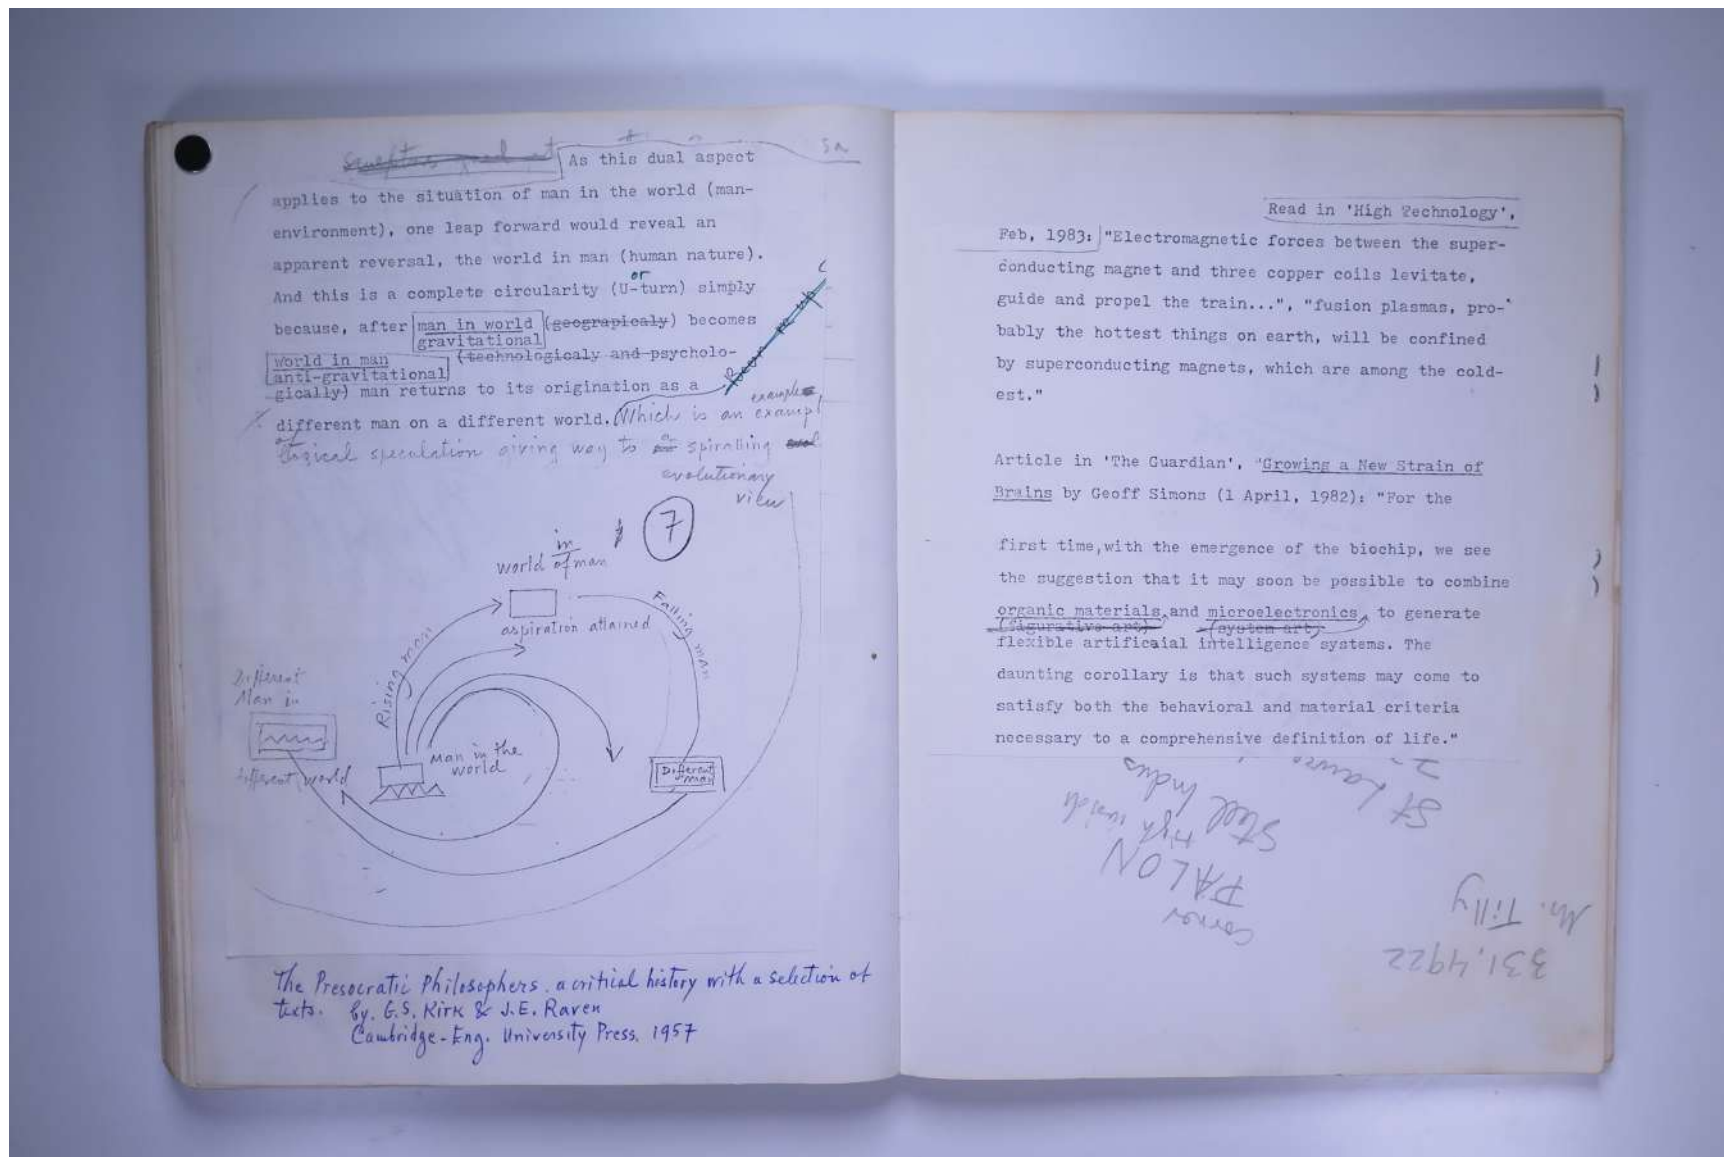 As this dual aspect
applies to the situation of man in the world (man-
environment), one leap forward would reveal an
apparent reversal, the world in man (human nature).
or
And this is a complete circularity (U-turn) simply
because, after man in world (geograpicaly) becomes
gravitational
world in man (technologicaly and psycholo-
anti-gravitational
gically) man returns to its origination as a
different man on a different world. Which is an
example
of
logical speculation giving way to a spiralling
evolutionary
view
7
in
world of man
aspiration attained
Rising man
Falling man
Different
Man in
different world
Man in the
world
Different
man
The Presocratic Philosophers. a critical history with a selection of
texts. by. G.S. Kirk & J.E. Raven
Cambridge-Eng. University Press. 1957
5a
Read in 'High Technology',
Feb, 1983: "Electromagnetic forces between the super-
conducting magnet and three copper coils levitate,
guide and propel the train...", "fusion plasmas, pro-
bably the hottest things on earth, will be confined
by superconducting magnets, which are among the cold-
est."
Article in 'The Guardian', "Growing a New Strain of
Brains by Geoff Simons (1 April, 1982): "For the
first time,with the emergence of the biochip, we see
the suggestion that it may soon be possible to combine
organic materials and microelectronics to generate
(figurative art) (system art)
flexible artificaial intelligence systems. The
daunting corollary is that such systems may come to
satisfy both the behavioral and material criteria
necessary to a comprehensive definition of life."
St
Steel Indus
High
PALON
corner
Mr. Tilly
331.4922